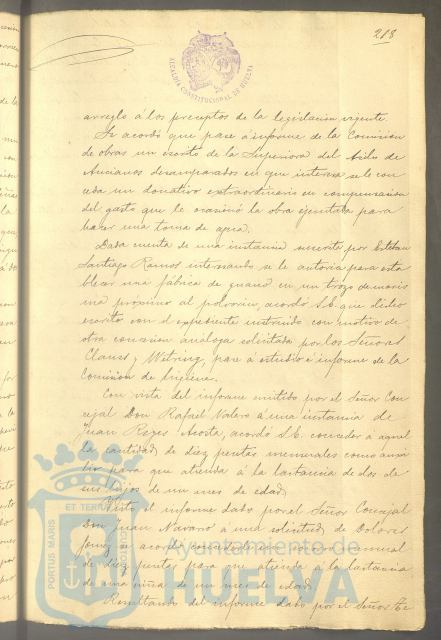 218
ALCALDÍA CONSTITUCIONAL DE HUELVA
arreglo á los preceptos de la legislación vigente.
Se acordó que pase á informe de la Comisión
de obras un escrito de la Superiora del Asilo de
Ancianos desamparados en que interesa se le con
ceda un donativo extraordinario en compensación
del gasto que le ocasionó la obra ejecutada para
hacer una toma de agua.
Dada cuenta de una instancia suscrita por Esteban
Santiago Ramos interesando se le autorice para esta
blecer una fábrica de guano en un trozo de maris
ma próximo al polvorín, acordó S.E. que dicho
escrito con el expediente instruido con motivo de
otra concesión análoga solicitada por los Señores
Clauss y pase á estudio é informe de la
Comisión de higiene.
Con vista del informe emitido por el Señor Con
cejal Don Rafael Valero á una instancia de
Juan Reyes Acosta, acordó S.E. conceder á aquel
la cantidad de diez pesetas mensuales como auxi
lio para que atienda á la lactancia de dos de
sus hijos de un mes de edad.
Visto el informe dado por el Señor Concejal
Don Juan Navarro á una solicitud de Dolores
se acordó concederle un socorro mensual
de diez pesetas para que atienda á la lactancia
de una niña de un mes de edad.
Resultando del informe dado por el Señor Te
PORTUS MARIS ET TERRAE CUSTODIA
Ayuntamiento de
HUELVA